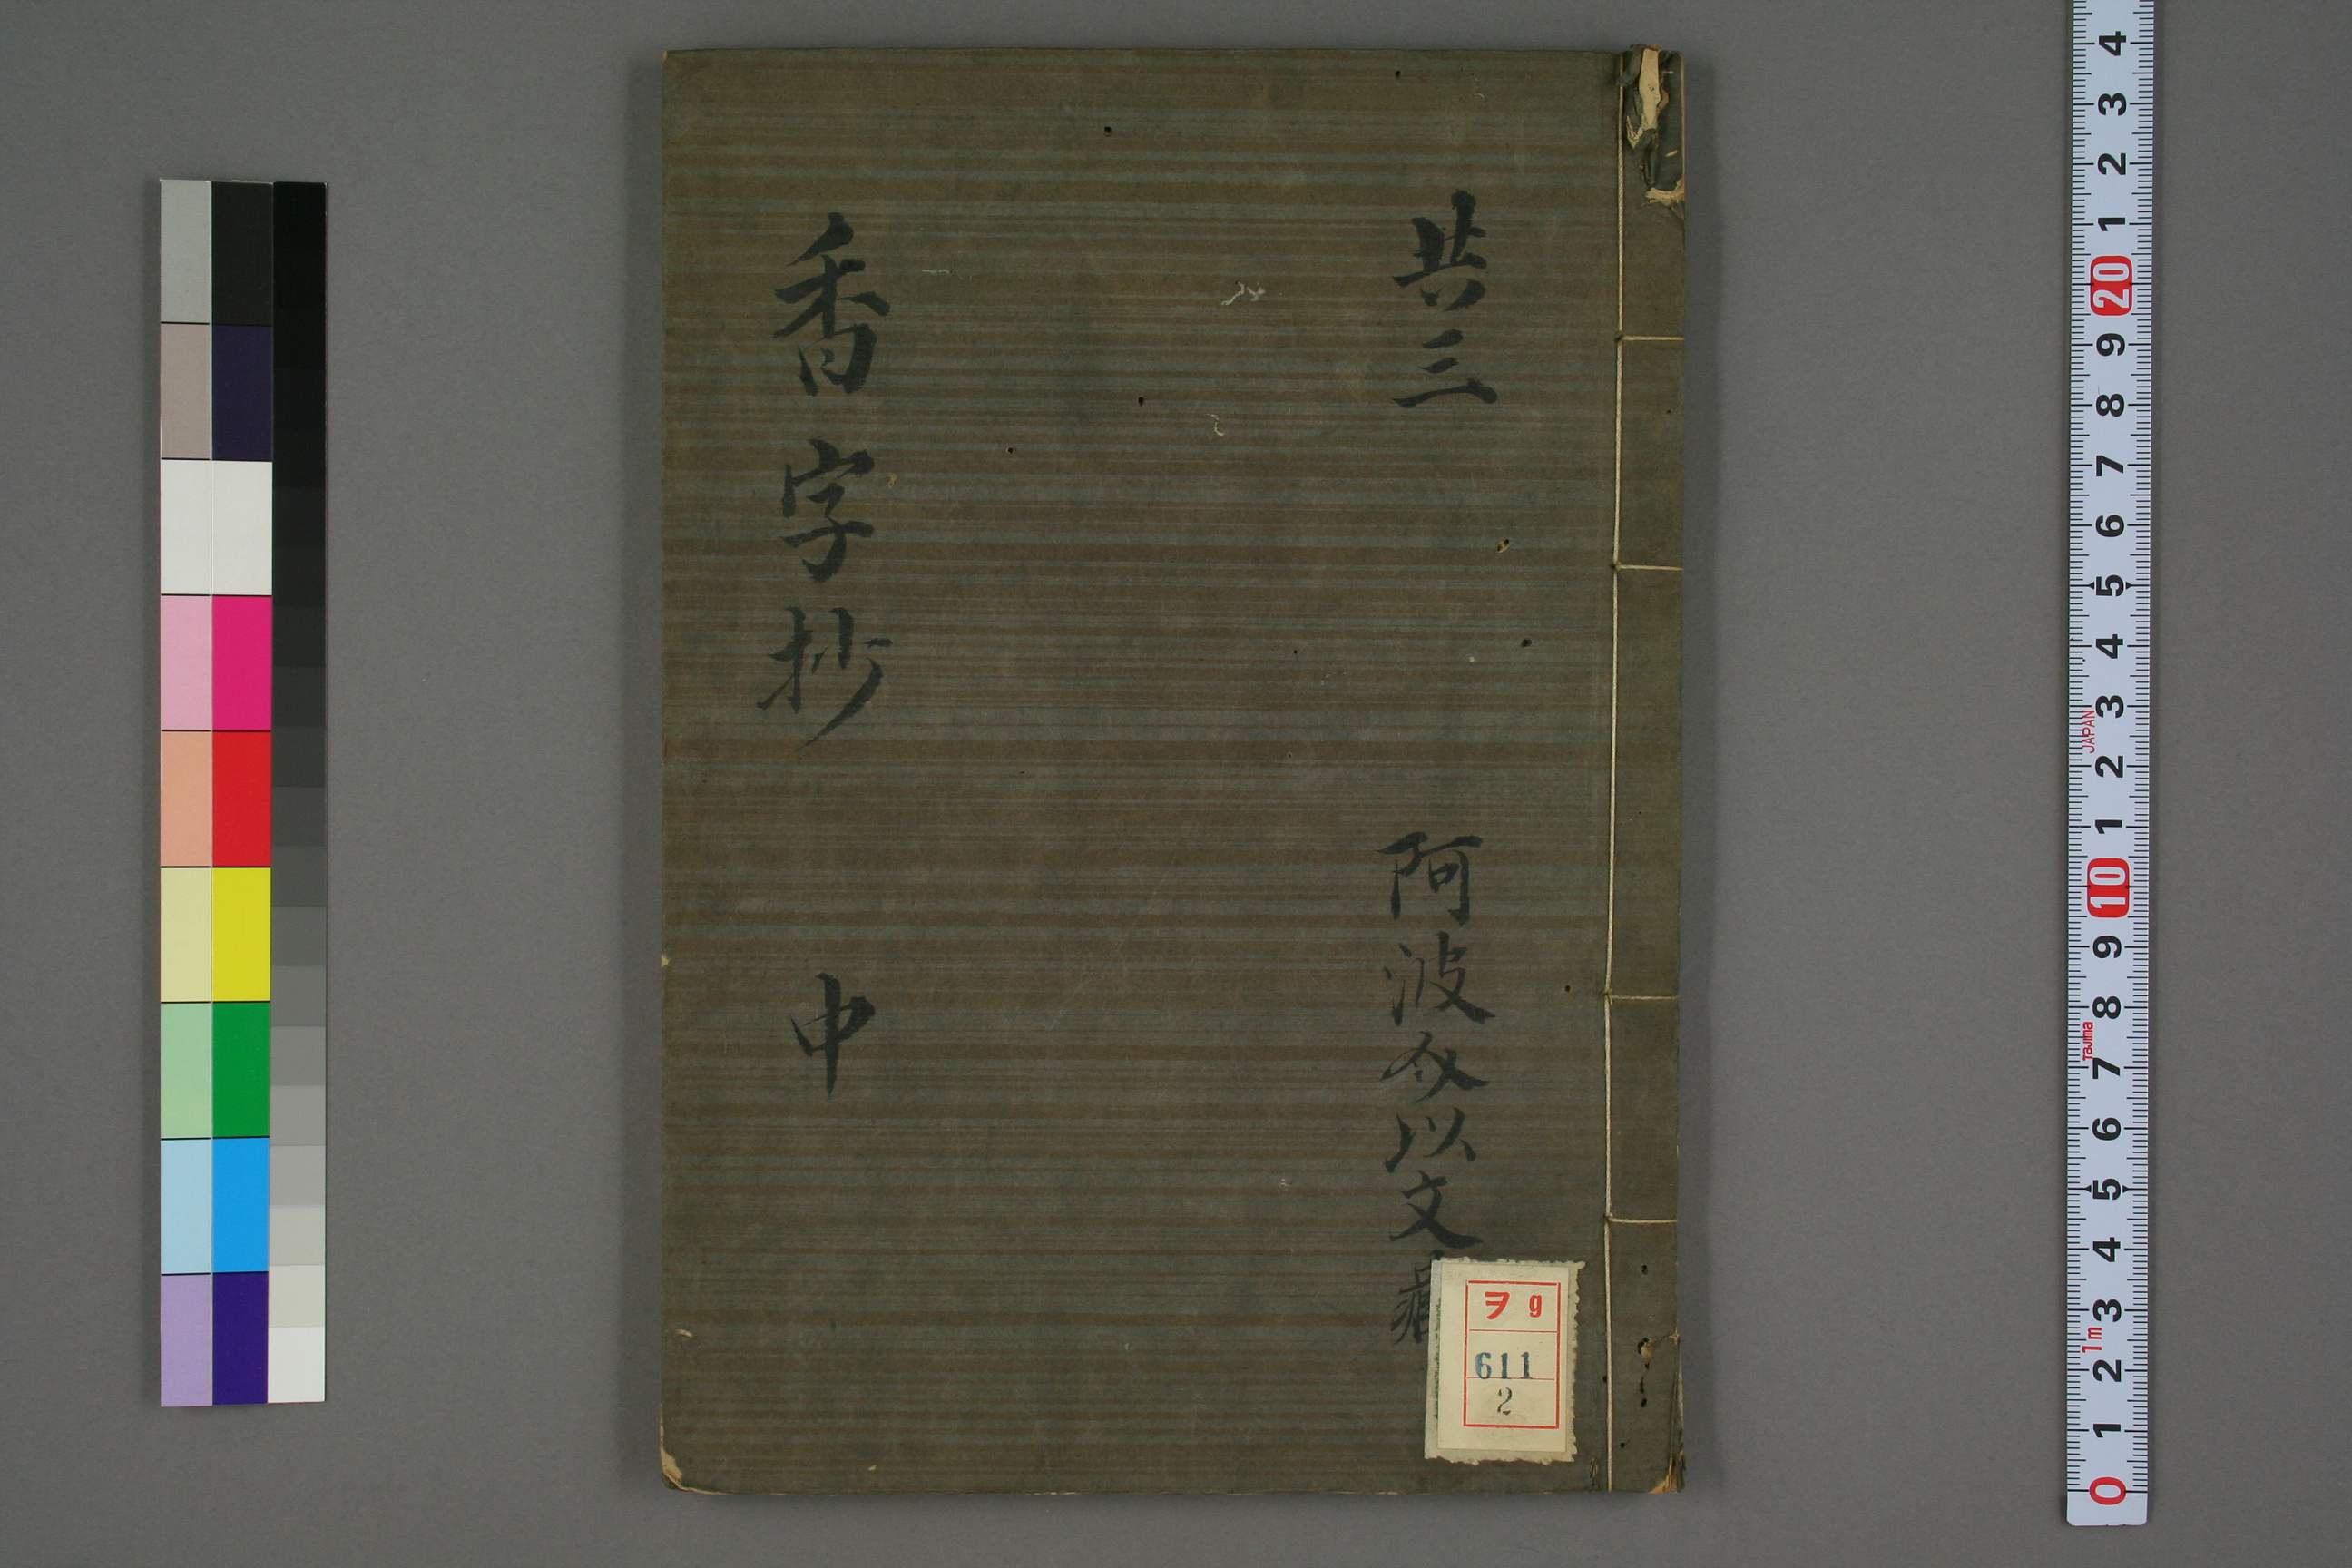 共三
阿波介以文藏
香字抄 中
ヲ g
611
2
4
3
2
1
20
9
8
7
6
5
4
3
JAPAN
2
1
10
9
8
Tajima
7
6
5
4
3
1m
2
1
0